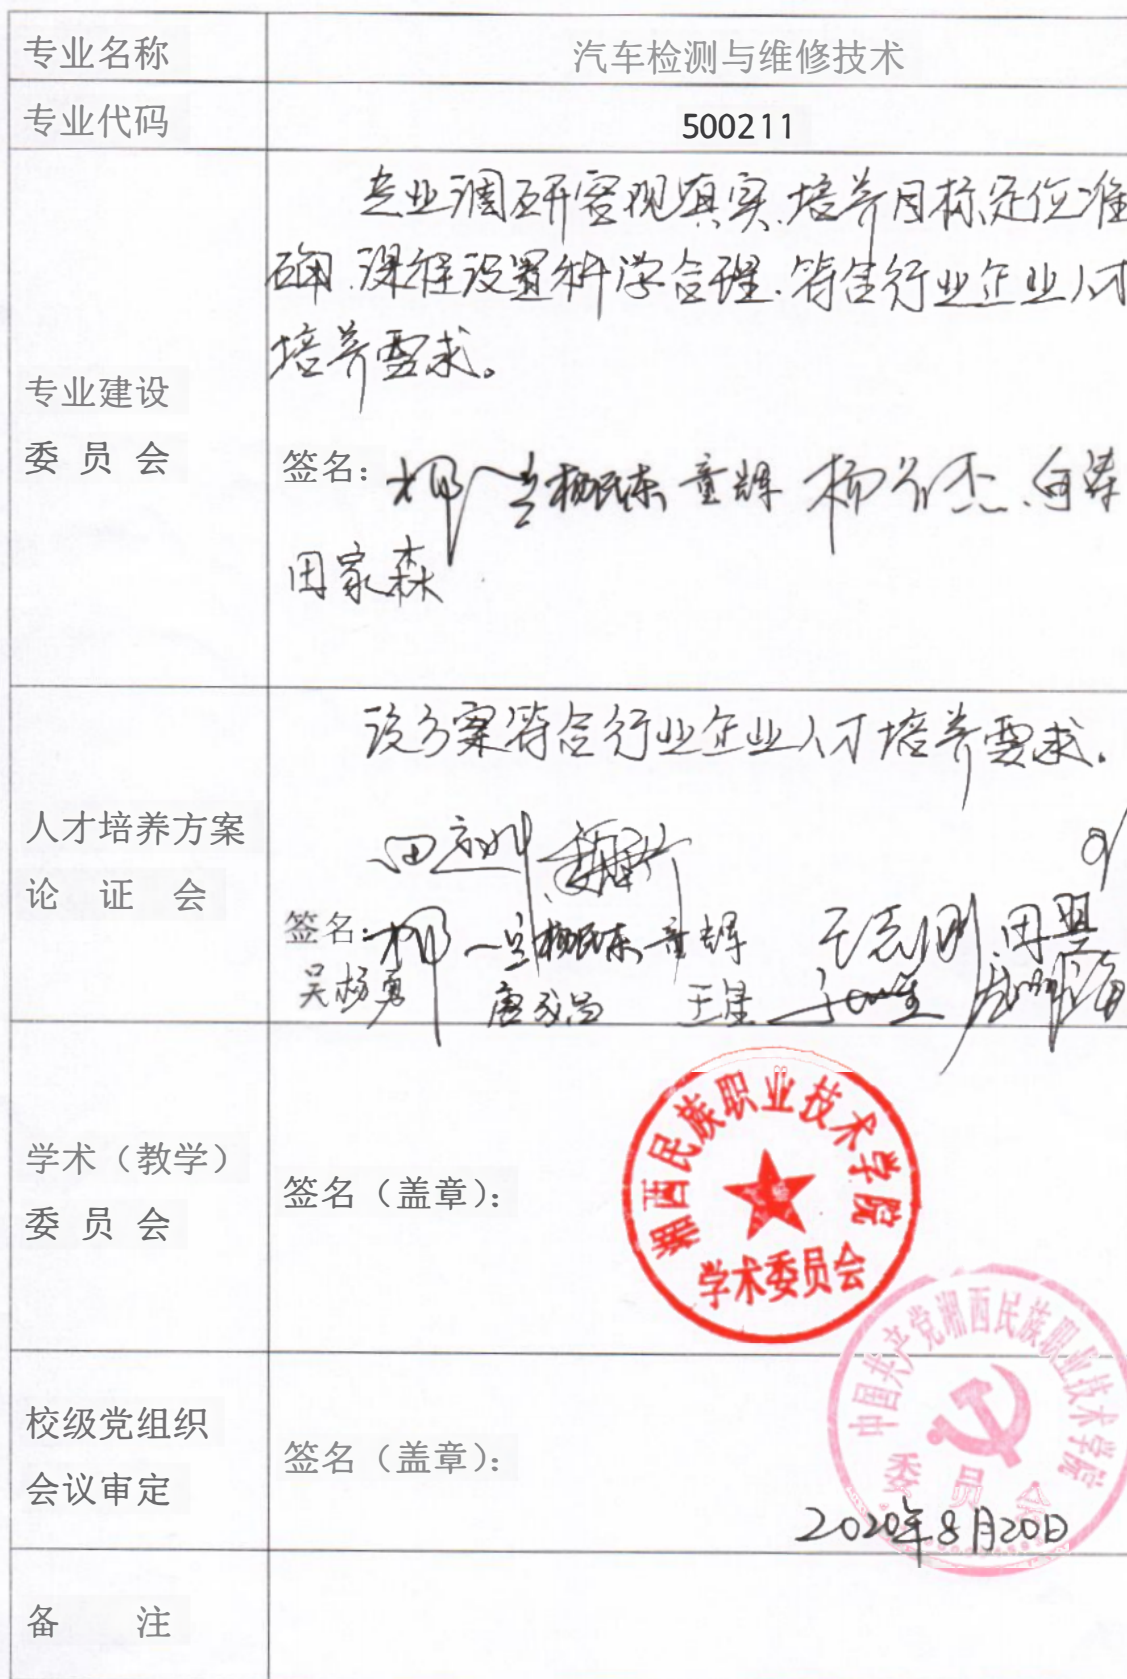 专业名称
汽车检测与维修技术
专业代码
500211
专业建设
委员会
专业调研客观真实、培养目标定位准
确、课程设置科学合理、符合行业企业人才
培养需求。
签名：
杨民东 童辉
田家森
人才培养方案
论证会
该方案符合行业企业人才培养需求。
签名：
杨民东 童辉
吴杨勇 唐成昌 王星
学术（教学）
委员会
签名（盖章）：
湘西民族职业技术学院
学术委员会
校级党组织
会议审定
签名（盖章）：
中国共产党湘西民族职业技术学院
委员会
2020年8月20日
备注